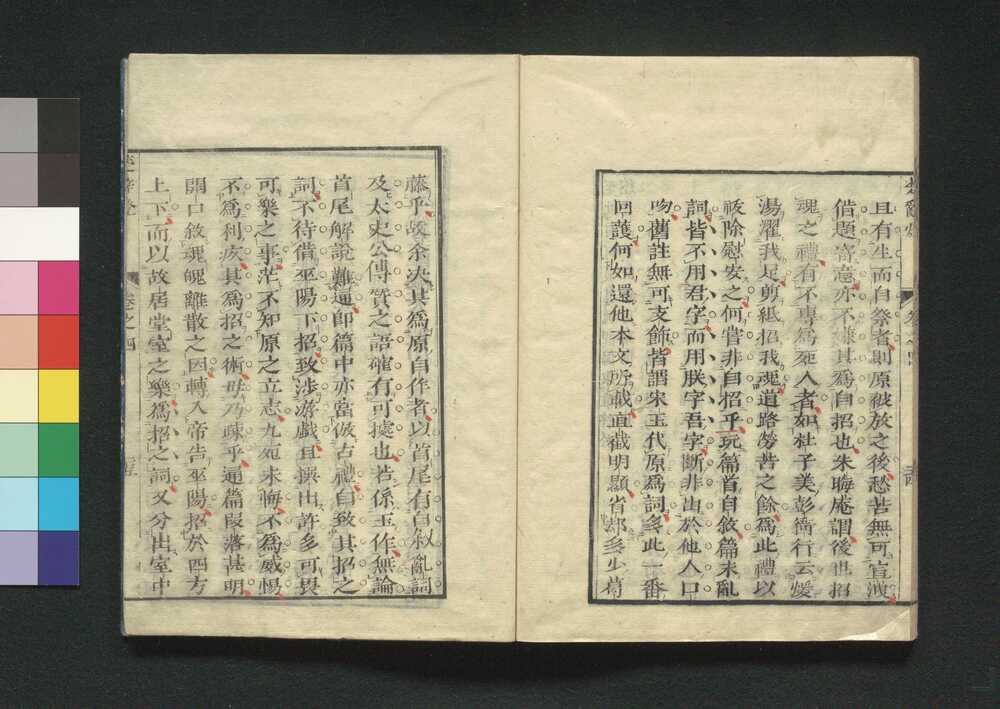 且有生而自祭者則原被放之後愁苦無可宣洩
借題寄意亦不嫌其爲自招也朱晦庵謂後世招
魂之禮有不專爲死人者如杜子美彭衙行云煖
湯濯我足剪紙招我魂道路勞苦之餘爲此禮以
祓除慰安之何嘗非自招乎玩篇首自敘篇末亂
詞皆不用君字而用朕字吾字斷非出於他人口
吻舊註無可支飾皆謂宋玉代原爲詞多此一番
回護何如還他本文所載直截明顯省却多少葛
藤乎故余決其爲原自作者以首尾有自叙亂詞
及太史公傳贊之語確有可據也若係玉作無論
首尾解說難通卽篇中亦當倣古禮自致其招之
詞不待借巫陽下招致涉游戲且撰出許多可畏
可樂之事茫不知原之立志九死未悔不爲威惕
不爲利疚其爲招之術毋乃疎乎通篇段落甚明
開口敘魂魄離散之因轉入帝告巫陽招於四方
上下而以故居堂室之樂爲招之詞又分出室中
卷之四